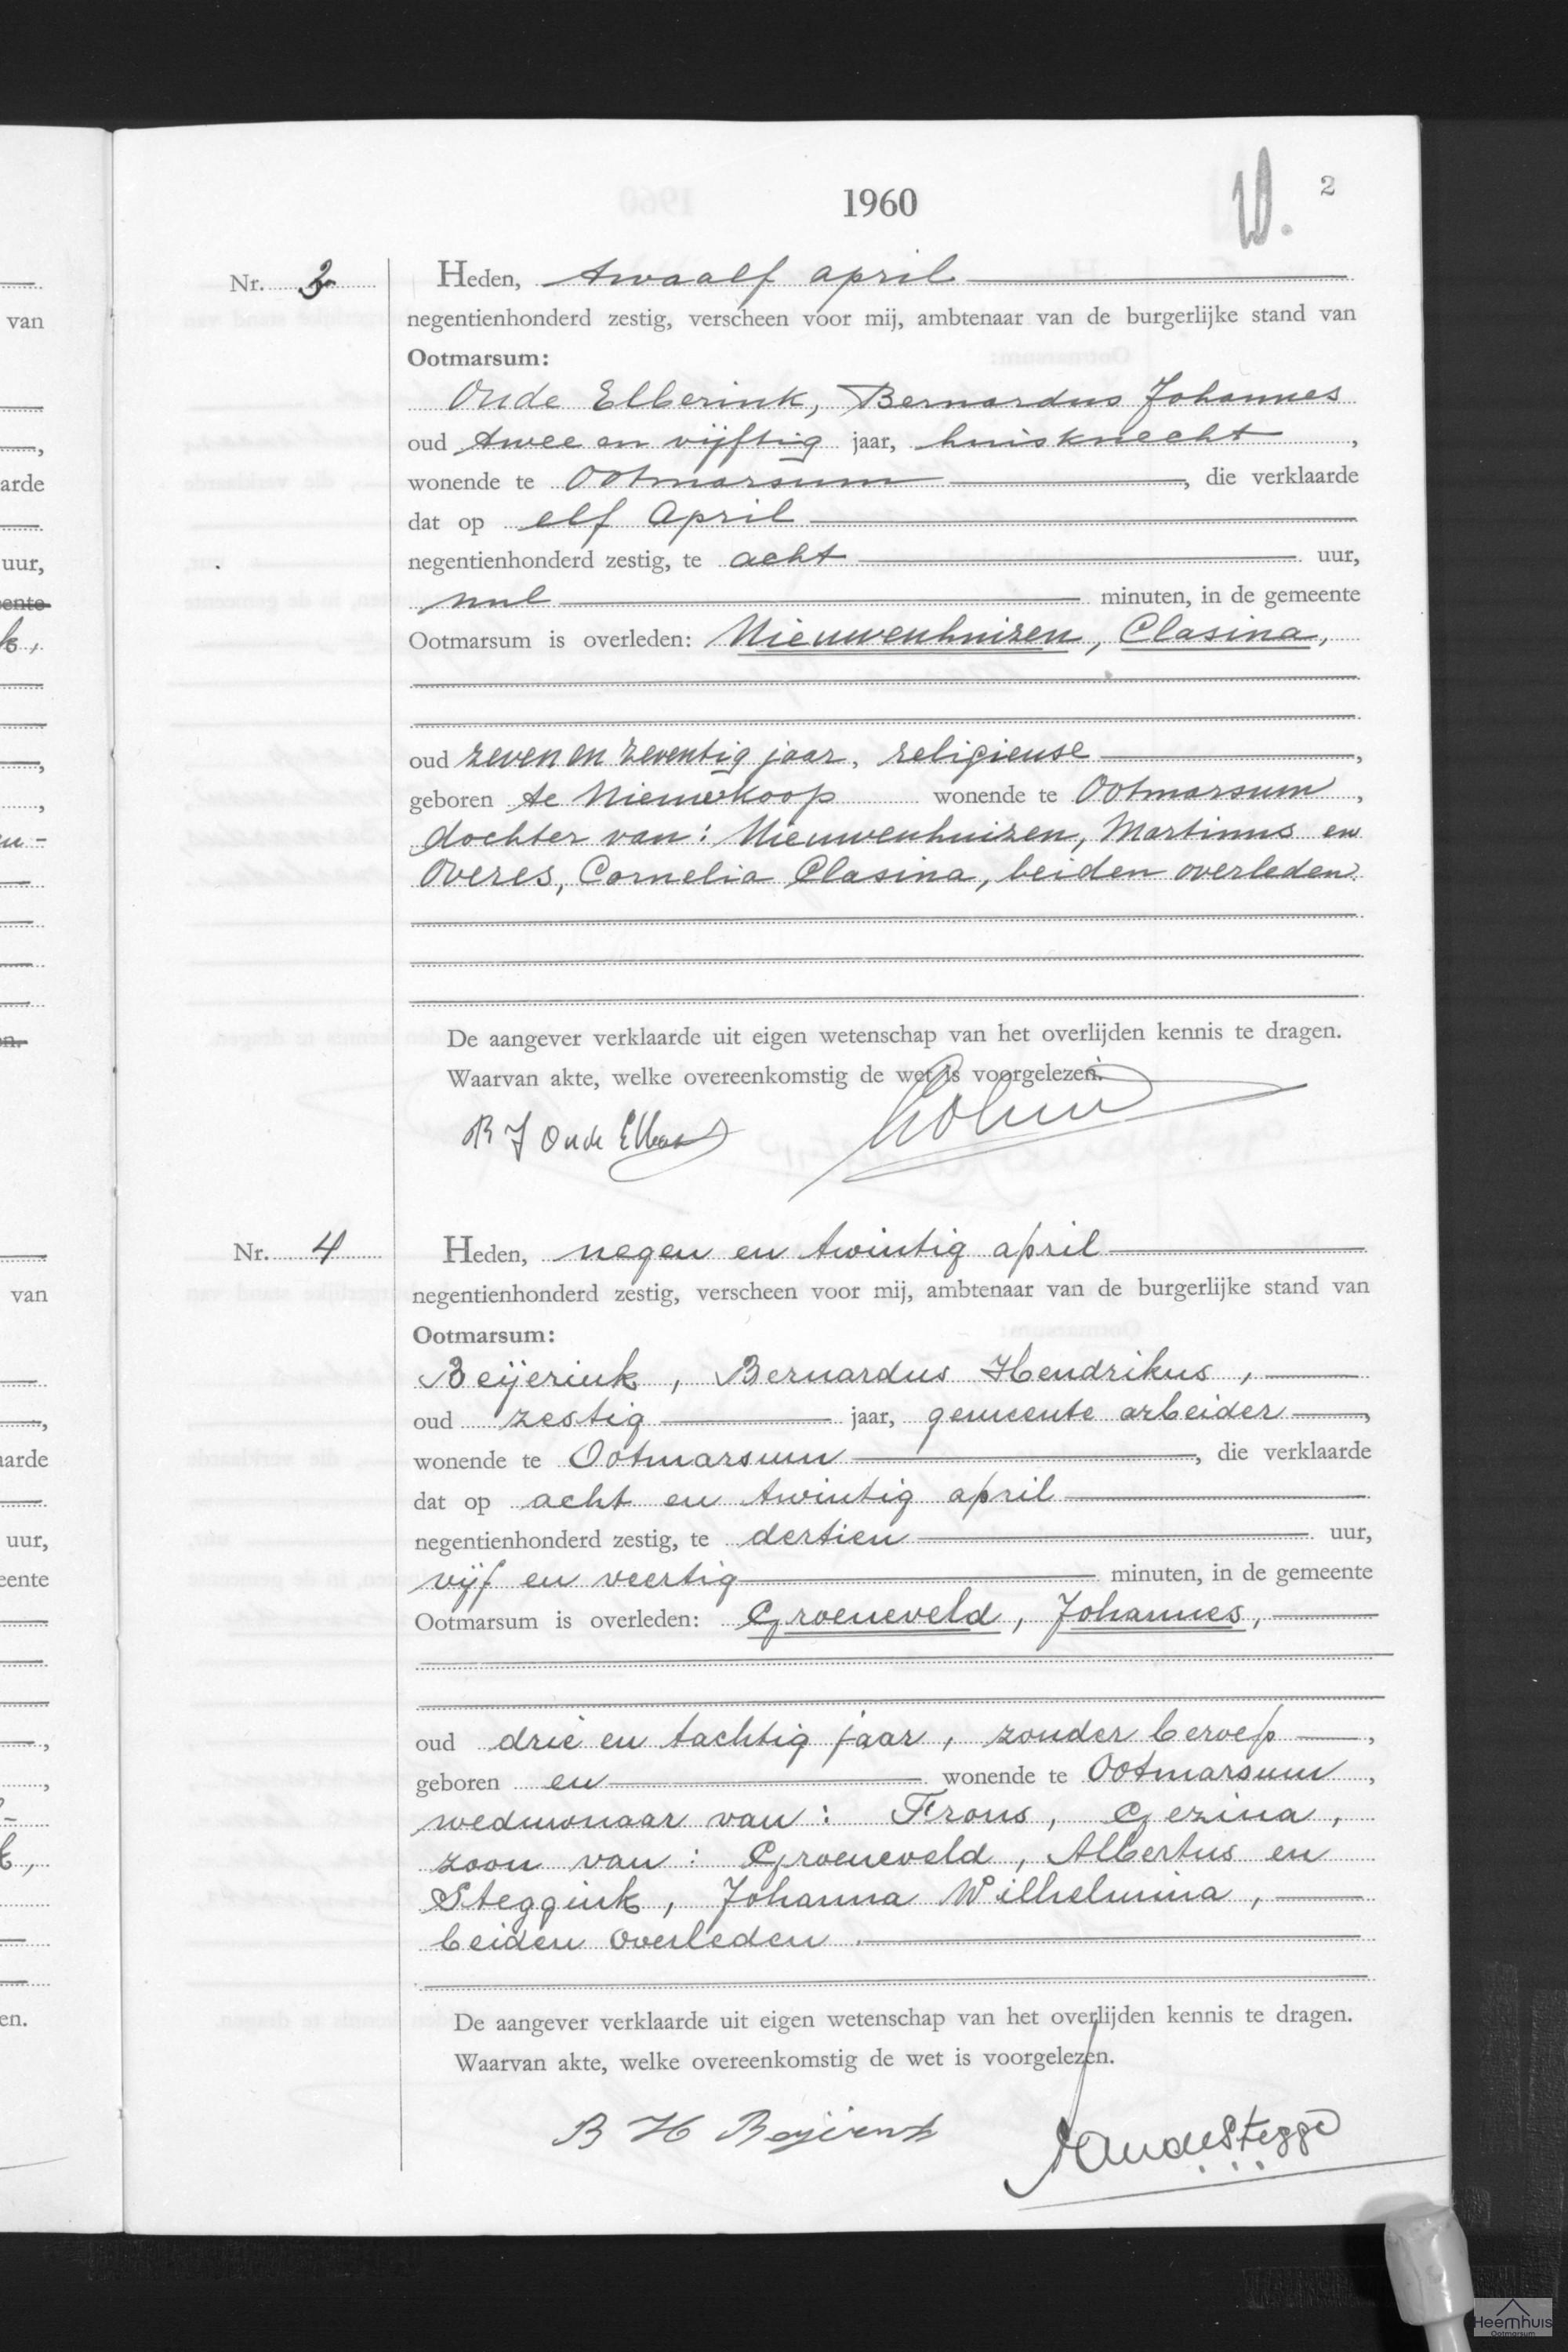 1960
2
Nr. 3
Heden, twaalf april
negentienhonderd zestig, verscheen voor mij, ambtenaar van de burgerlijke stand van
Ootmarsum:
Oude Elberink, Bernardus Johannes
oud twee en vijftig jaar, huisknecht,
wonende te Ootmarsum, die verklaarde
dat op elf April
negentienhonderd zestig, te acht uur,
nul minuten, in de gemeente
Ootmarsum is overleden: Nieuwenhuizen, Clasina,
oud zeven en zeventig jaar, religieuse,
geboren te Nieuwkoop wonende te Ootmarsum,
dochter van: Nieuwenhuizen, Martinus en
Overes, Cornelia Clasina, beiden overleden.
De aangever verklaarde uit eigen wetenschap van het overlijden kennis te dragen.
Waarvan akte, welke overeenkomstig de wet is voorgelezen.
B J Oude
Nr. 4
Heden, negen en twintig april
negentienhonderd zestig, verscheen voor mij, ambtenaar van de burgerlijke stand van
Ootmarsum:
Beijerink, Bernardus Hendrikus,
oud zestig jaar, gemeente arbeider,
wonende te Ootmarsum, die verklaarde
dat op acht en twintig april
negentienhonderd zestig, te dertien uur,
vijf en veertig minuten, in de gemeente
Ootmarsum is overleden: Groeneveld, Johannes,
oud drie en tachtig jaar, zonder beroep,
geboren en wonende te Ootmarsum,
weduwnaar van: Frons, Gezina,
zoon van: Groeneveld, Albertus en
Steggink, Johanna Wilhelmina,
beiden overleden.
De aangever verklaarde uit eigen wetenschap van het overlijden kennis te dragen.
Waarvan akte, welke overeenkomstig de wet is voorgelezen.
B H Beijerink
Heemhuis
Ootmarsum